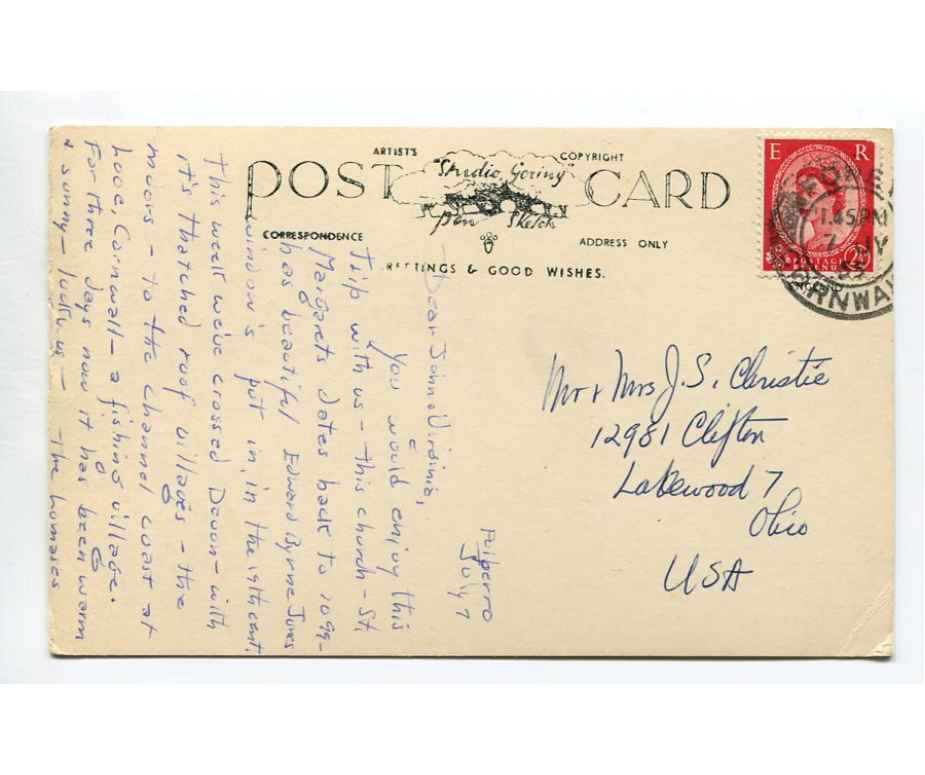 ARTIST'S COPYRIGHT
POST CARD
"Studio Goring"
pen Sketch
CORRESPONDENCE
ADDRESS ONLY
GREETINGS & GOOD WISHES.
E R
POSTAGE
REVENUE
1.45 PM
7
CORNWALL
Mr + Mrs J.S. Christie
12981 Clifton
Lakewood 7
Ohio
USA
July 7
Dear John & Virginia,
You would enjoy this
trip with us - this church - St.
Margarets dates back to 1099 -
has beautiful Edward Byrne Jones
window's put in, in the 19th cent.
This week we've crossed Devon - with
it's thatched roof villages - the
moors - to the channel coast at
Looe, Cornwall - a fishing village.
For three days now it has been warm
& sunny - lucky us -